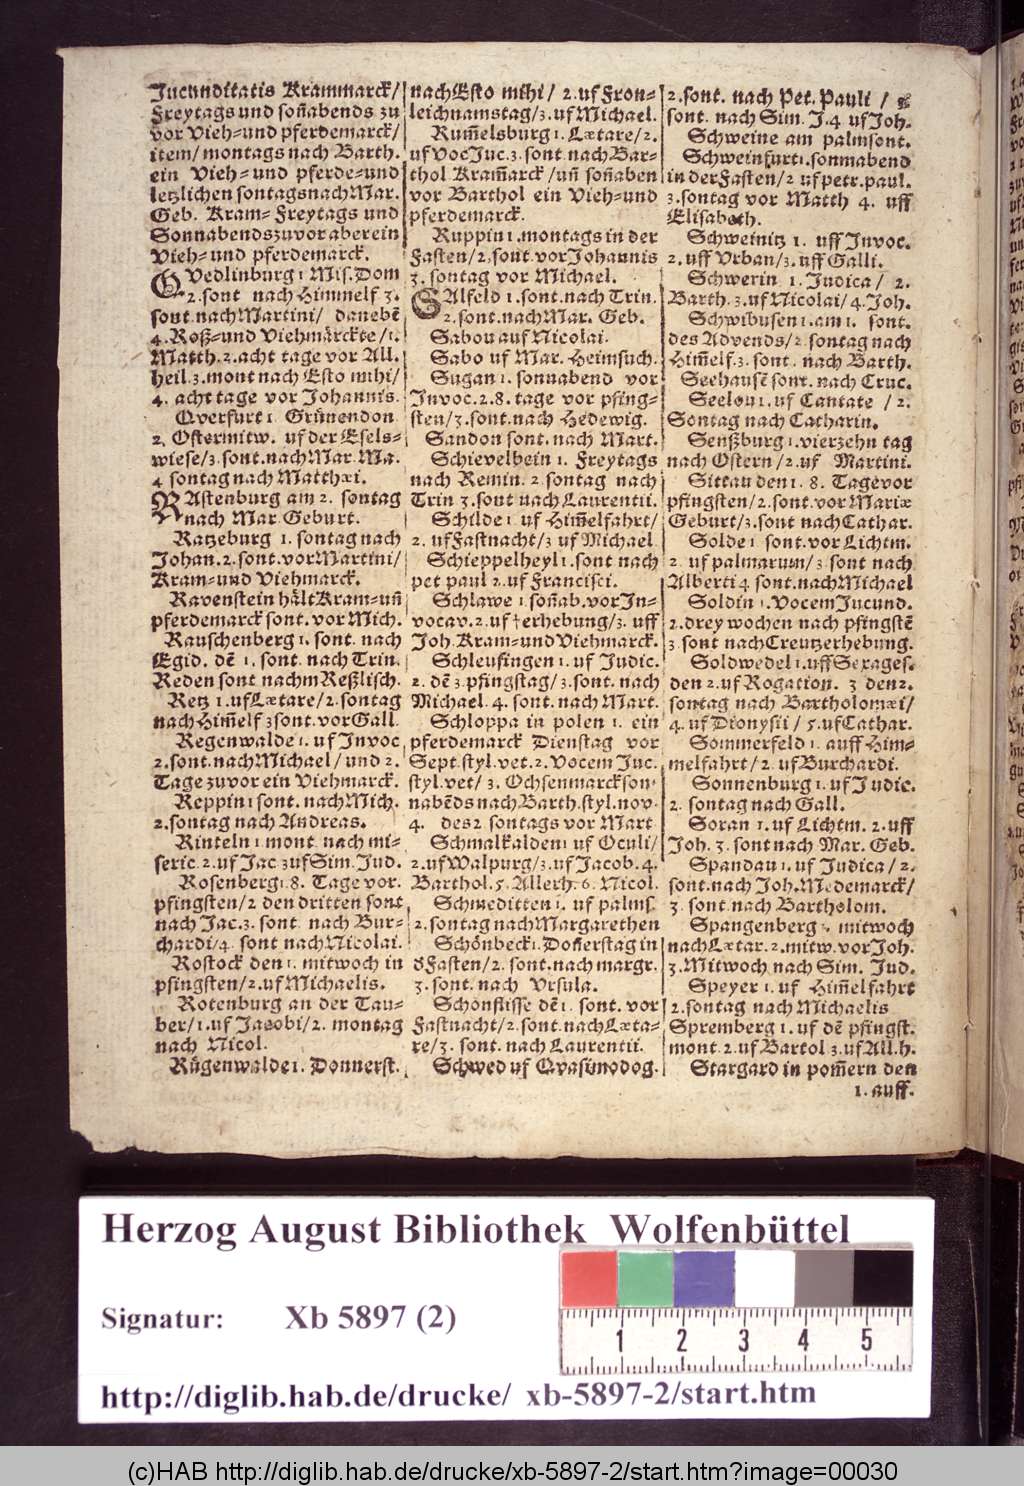 Jucunditatis Krammarck/
Freytags und soñabends zu
vor Vieh=und pferdemarck/
item/ montags nach Barth.
ein Vieh= und pferde=und
letzlichen sontags nach Mar.
Geb. Kram= Freytags und
Sonnabends zuvor aber ein
Vieh= und pferdemarck.
QVedlinburg 1 Mis. Dom
2. sont nach Himmelf 3.
sont. nach Martini/ danebẽ
4. Roß=und Viehmärckte/1.
Matth. 2. acht tage vor All.
heil. 3. mont nach Esto mihi/
4. acht tage vor Johannis.
Qverfurt 1 Grünendon
2. Ostermitw. uf der Esels=
wiese/3. sont. nach Mar. Ma.
4 sontag nach Matthæi.
RAstenburg am 2. sontag
nach Mar Geburt.
Ratzeburg 1. sontag nach
Johan. 2. sont. vor Martini/
Kram=und Viehmarck.
Ravenstein hält Kram=uñ
pferdemarck sont. vor Mich.
Rauschenberg 1. sont. nach
Egid. dẽ 1. sont. nach Trin.
Reden sont nachm Reßlisch.
Retz 1. uf Lætare/2. sontag
nach Him̃elf 3 sont. vor Gall.
Regenwalde 1. uf Invoc
2. sont. nach Michael/ und 2.
Tage zuvor ein Viehmarck.
Reppin 1 sont. nach Mich.
2. sontag nach Andreas.
Rinteln 1 mont. nach mi=
seric. 2. uf Jac 3 uf Sim. Jud.
Rosenberg 1. 8. Tage vor.
pfingsten/2 den dritten sont
nach Jac. 3. sont nach Bur=
chardi/4. sont nach Nicolai.
Rostock den 1. mitwoch in
pfingsten/2. uf Michaelis.
Rotenburg an der Tau=
ber/1. uf Jacobi/2. montag
nach Nicol.
Rügenwalde 1. Donnerst.
nach Esto mihi/ 2. uf Fron=
leichnamstag/3. uf Michael.
Rum̃elsburg 1. Lætare/2.
uf Voc Juc. 3. sont. nach Bar=
thol Kram̃arck/uñ soñaben
vor Barthol ein Vieh=und
pferdemarck.
Ruppin 1. montags in der
Fasten/2. sont. vor Johannis
3. sontag vor Michael.
SAlfeld 1. sont. nach Trin.
2. sont. nach Mar. Geb.
Sabou auf Nicolai.
Sabo uf Mar. Heimsuch.
Sugan 1. sonnabend vor
Invoc. 2. 8. tage vor pfing=
sten/3. sont. nach Hedewig.
Sandon sont. nach Mart.
Schievelbein 1. Freytags
nach Remin. 2. sontag nach
Trin 3. sont nach Laurentii.
Schilde 1 uf Him̃elfahrt/
2. uf Fastnacht/3 uf Michael
Schieppelheyl 1. sont nach
pet paul 2. uf Francisci.
Schlawe 1. soñab. vor In=
vocav. 2. uf †erhebung/3. uff
Joh. Kram=und Viehmarck.
Schleusingen 1. uf Judic.
2. dẽ 3. pfingstag/3. sont. nach
Michael. 4. sont. nach Mart.
Schloppa in polen 1. ein
pferdemarck Dienstag vor
Sept. styl. vet. 2. Vocem Juc.
styl. vet/ 3. Ochsenmarck son=
nabẽds nach Barth. styl. nov.
4. des 2 sontags vor Mart
Schmalkalden 1 uf Oculi/
2. uf Walpurg/3. uf Jacob. 4.
Barthol. 5. Allerh. 6. Nicol.
Schmeditten 1. uf palms
2. sontag nach Margarethen
Schönbeck 1. Doñerstag in
d Fasten/2. sont. nach margr.
3. sont. nach Vrsula.
Schönflisse dẽ 1. sont. vor
Fastnacht/2. sont. nach Læta=
re/3. sont. nach Laurentii.
Schwed uf Qvasimodog.
2. sont. nach Pet. Pauli /
sont. nach Sim. J. 4 uf Joh.
Schweine am palmsont.
Schweinfurt 1. sonnabend
in der Fasten/2 uf petr. paul.
3. sontag vor Matth 4. uff
Elisabeth.
Schweinitz 1. uff Invoc.
2. uff Vrban/3. uff Galli.
Schwerin 1. Judica / 2.
Barth. 3. uf Nicolai/4. Joh.
Schwibusen 1. am 1. sont.
des Advends/2. sontag nach
Him̃elf. 3. sont. nach Barth.
Seehausẽ sont. nach Cruc.
Seelou 1. uf Cantate / 2.
Sontag nach Catharin.
Senßburg 1. vierzehn tag
nach Ostern/2. uf Martini.
Sittau den 1. 8. Tage vor
pfingsten/2. sont. vor Mariæ
Geburt/3. sont nach Cathar.
Solde 1 sont. vor Lichtm.
2. uf palmarum/3. sont nach
Alberti 4. sont. nach Michael
Soldin 1. Vocem Jucund.
2. drey wochen nach pfingstẽ
3. sont nach Creutzerhebung.
Soldwedel 1. uff Sexages.
den 2. uf Rogation. 3 den 2.
sontag nach Bartholomæi/
4. uf Dionysii / 5. uf Cathar.
Sommerfeld 1. auff Him=
melfahrt/2. uf Burchardi.
Sonnenburg 1. uf Judic.
2. sontag nach Gall.
Soran 1. uf Lichtm. 2. uff
Joh. 3. sont nach Mar. Geb.
Spandau 1. uf Judica/2.
sont. nach Joh. Medemarck/
3. sont nach Bartholom.
Spangenberg 1. mitwoch
nach Lætar. 2. mitw. vor Joh.
3. Mitwoch nach Sim. Jud.
Speyer 1. uf Him̃elfahrt
2. sontag nach Michaelis
Spremberg 1. uf dẽ pfingst.
mont. 2. uf Bartol 3. uf All. h.
Stargard in pom̃ern den
1. auff.
Herzog August Bibliothek Wolfenbüttel
Signatur: Xb 5897 (2)
1 2 3 4 5
http://diglib.hab.de/drucke/ xb-5897-2/start.htm
(c)HAB http://diglib.hab.de/drucke/xb-5897-2/start.htm?image=00030